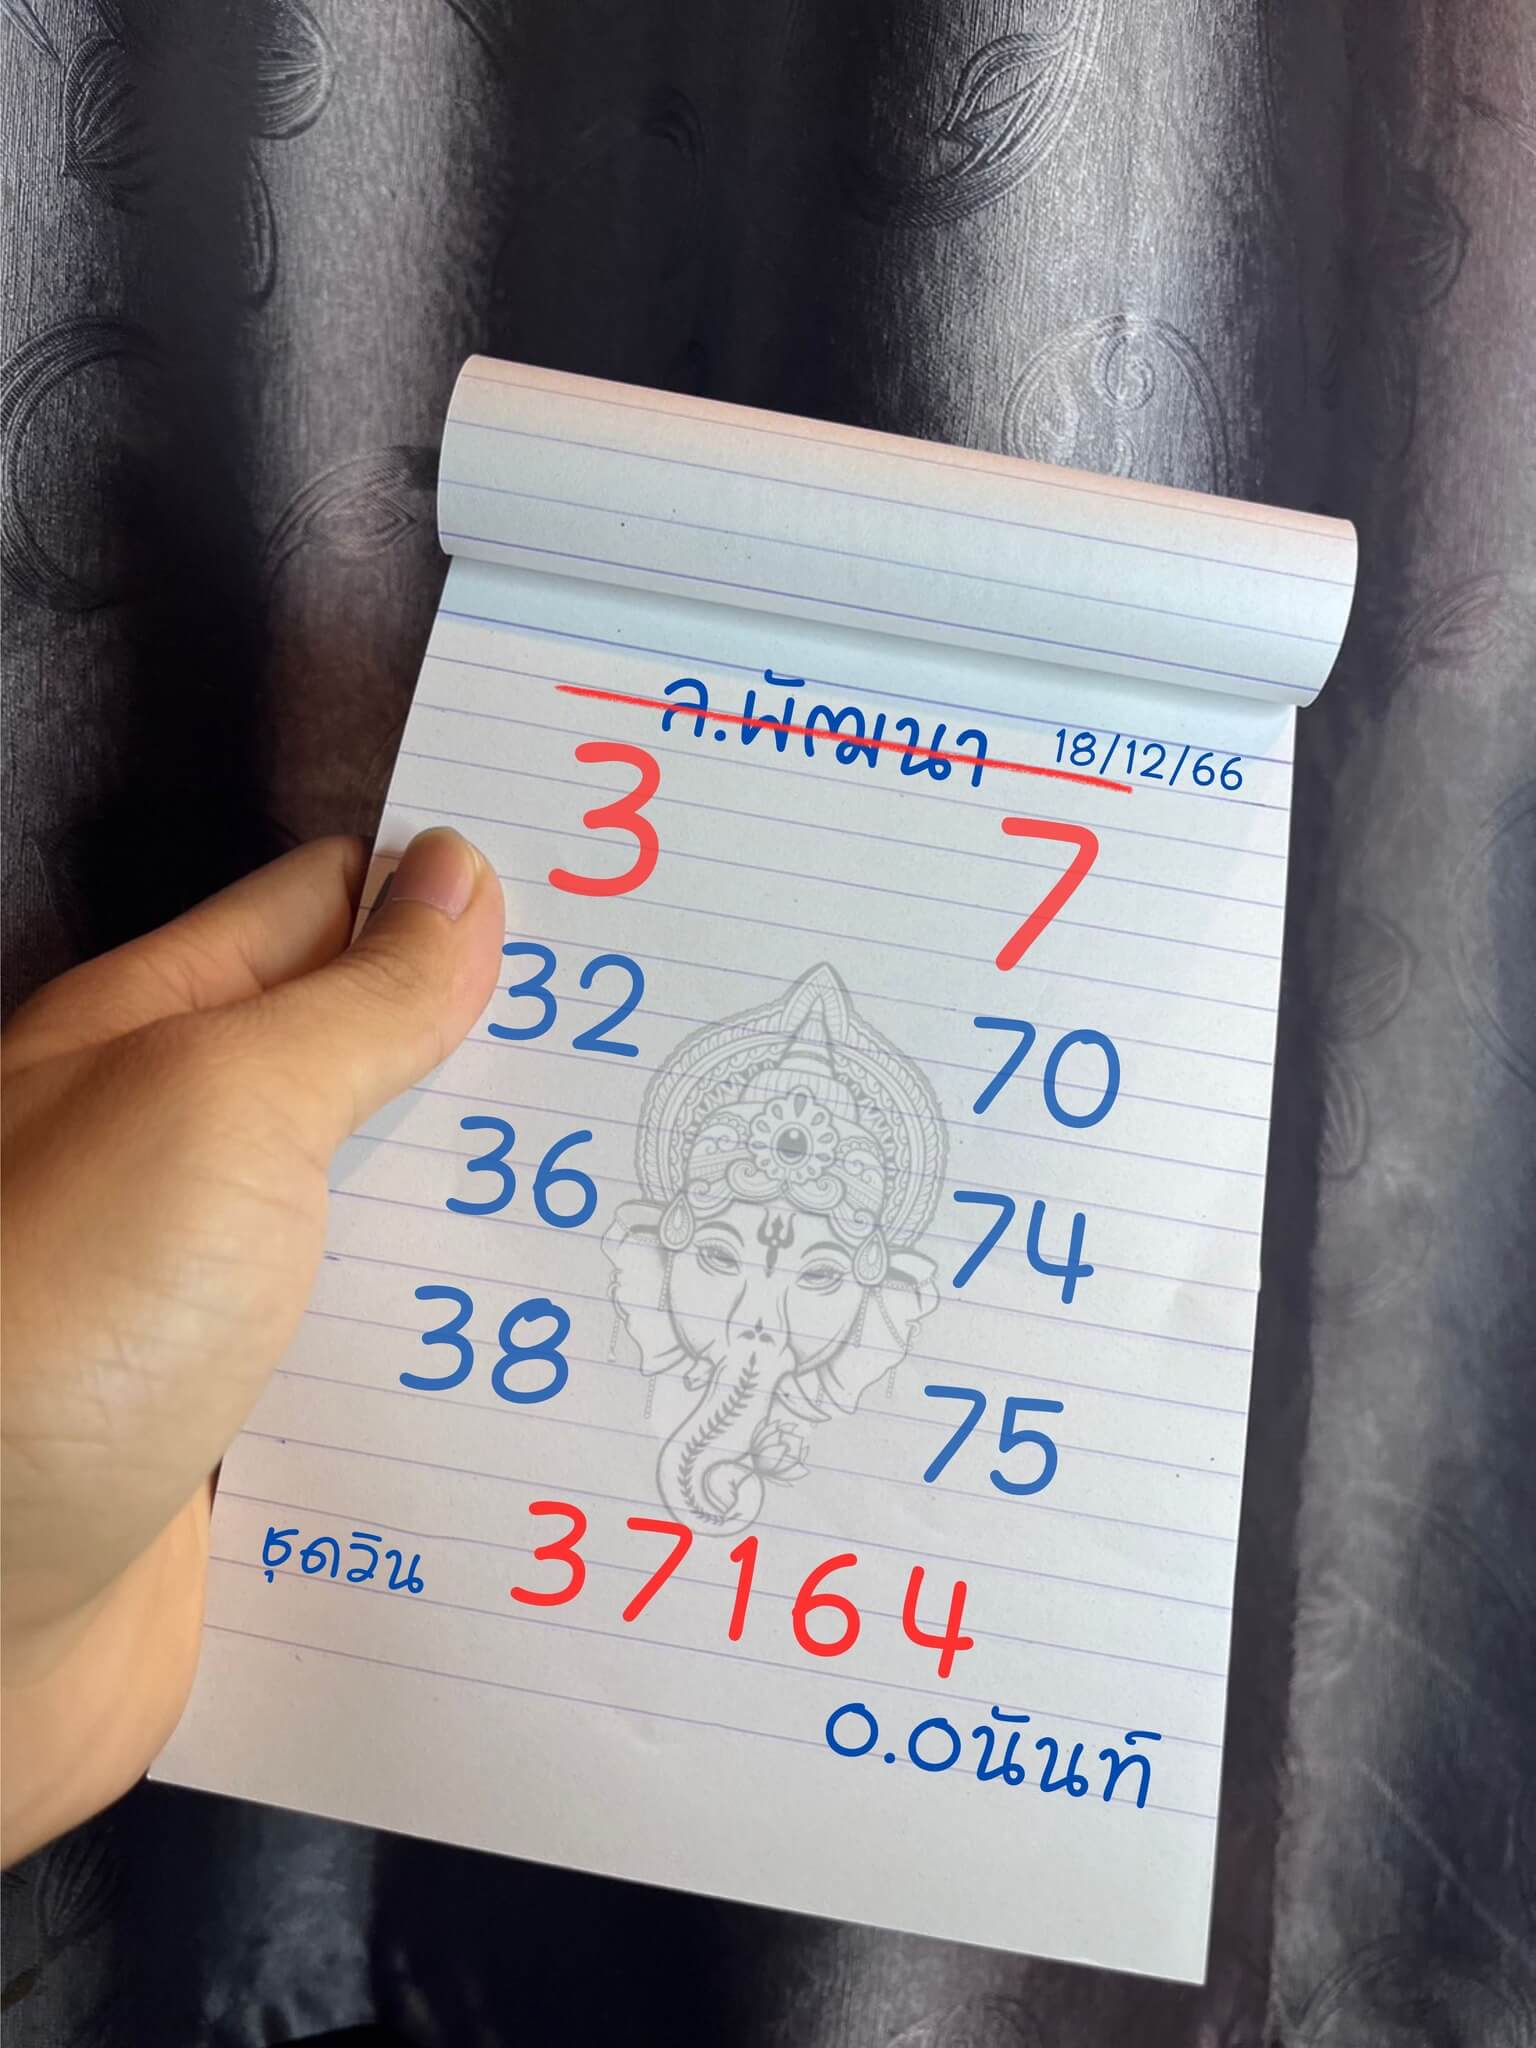 ล.พัฒนา 18/12/66
3 7
32 70
36 74
38 75
ชุดวิน 37164
อ.อนันท์